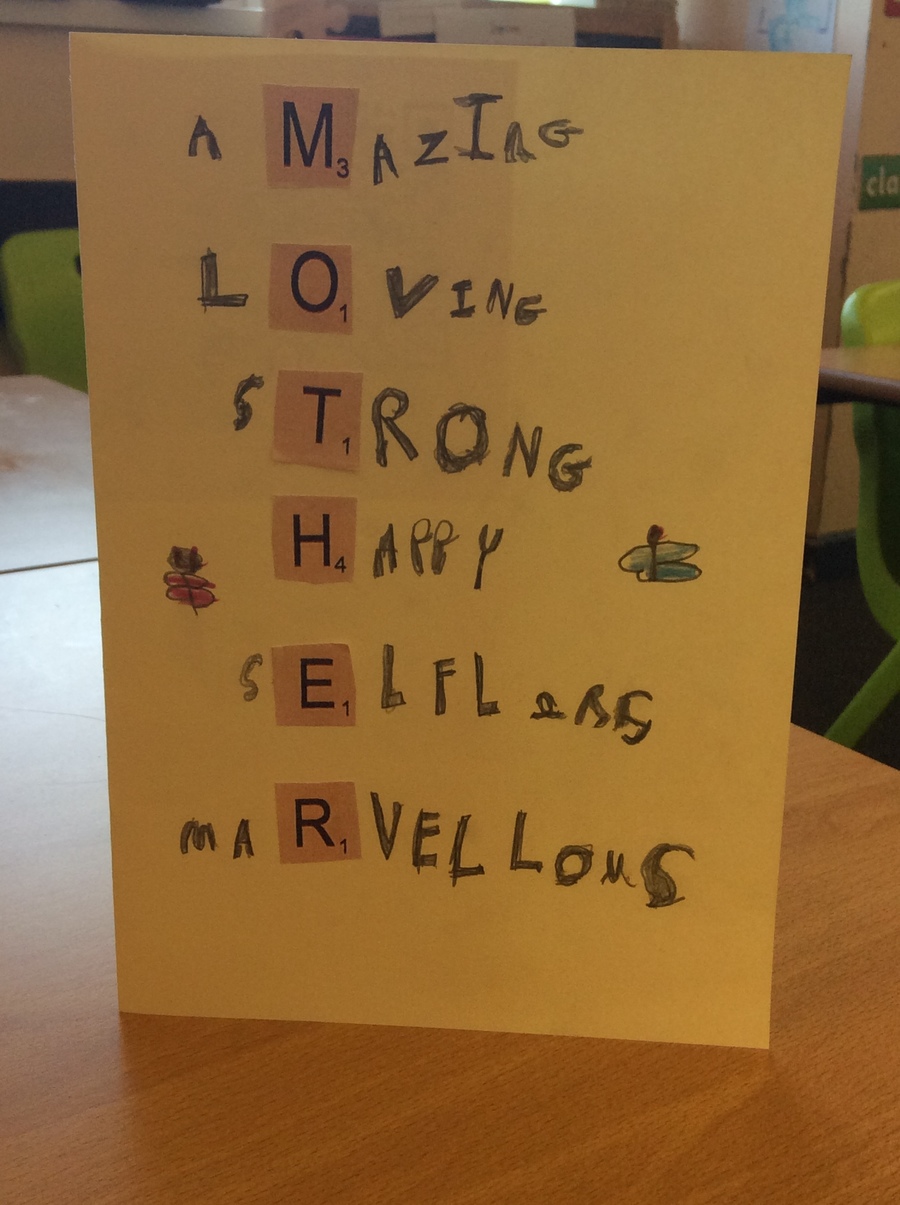 AMAZING
LOVING
STRONG
HAPPY
SELFLESS
MARVELLOUS
cla